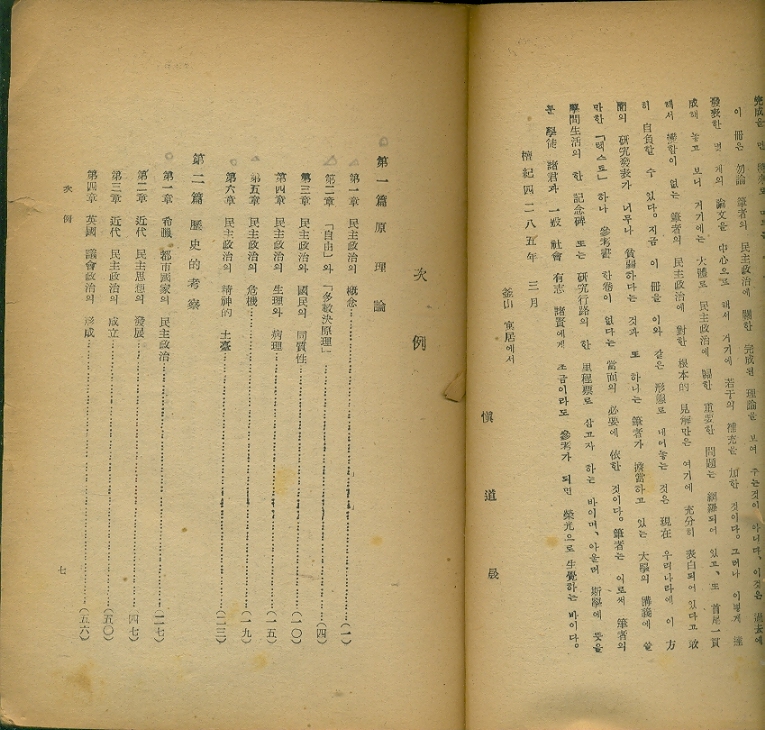 이 冊은 勿論 筆者의 民主政治에 關한 完成된 理論을 보여 주는것이 아니다. 이것은 過去에
發表한 몇 개의 論文을 中心으로 해서 거기에 若干의 補充을 加한 것이다. 그러나 이렇게 達
成해 놓고 보니 거기에는 大體로 民主政治에 關한 重要한 問題는 網羅되어 있고, 또 首尾一貫
해서 이 없는 筆者의 民主政治에 對한 根本的 見解만은 여기에 充分히 表白되어 있다고 敢
히 自負할 수 있다. 지금 이 冊을 이와 같은 形態로 내어놓는 것은 現在 우리나라에 이 方
面의 硏究發表가 너무나 貧弱하다는 것과 또 하나는 筆者가 擔當하고 있는 大學의 講義에 쓸
만한 「텍스트」하나 參考書 한卷이 없다는 當面의 必要에 依한 것이다. 筆者는 이로써 筆者의
學問生活의 한 記念碑 또는 硏究行路의 한 里程票로 삼고자 하는 바이며, 아울러 斯學에 뜻을
둔 學徒 諸君과 一般 社會 有志 諸賢에게 조금이라도 參考가 되면 榮光으로 生覺하는 바이다.
檀紀四二八五年 三月
釜山 寓居에서
愼道晟
次例
第一篇 原理論
第一章 民主政治의 槪念……(一)
第二章 「自由」와 「多數決原理」……(四)
第三章 民主政治와 國民의 同質性……(一〇)
第四章 民主政治의 生理와 病理……(一五)
第五章 民主政治의 危機……(一九)
第六章 民主政治의 精神的 土臺……(二三)
第二篇 歷史的 考察
第一章 希臘 都市國家의 民主政治……(二七)
第二章 近代 民主思想의 發展……(四七)
第三章 近代 民主政治의 成立……(五〇)
第四章 英國 議會政治의 形成……(五六)
次例
七